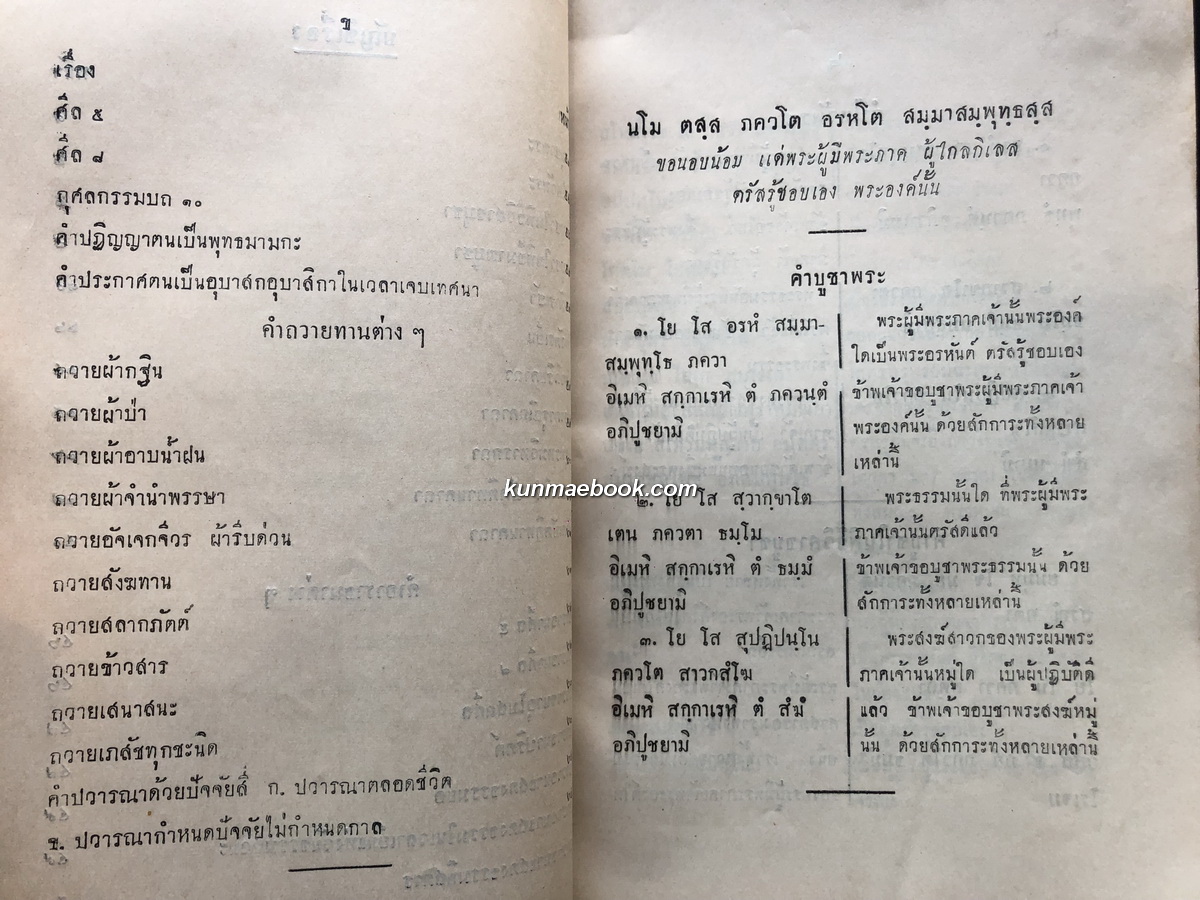 ข
เรื่อง
ศีล ๕
ศีล ๘
กุศลกรรมบถ ๑๐
คำปฏิญญาตนเป็นพุทธมามกะ
คำประกาศตนเป็นอุบาสกอุบาสิกาในเวลาเจบเทศนา
คำถวายทานต่าง ๆ
ถวายผ้ากฐิน
ถวายผ้าป่า
ถวายผ้าอาบน้ำฝน
ถวายผ้าจำนำพรรษา
ถวายอัจเจกจีวร ผ้ารีบด่วน
ถวายสังฆทาน
ถวายสลากภัตต์
ถวายข้าวสาร
ถวายเสนาสนะ
ถวายเภสัชทุกชะนิด
คำปวารณาด้วยปัจจัยสี่ ก. ปวารณาตลอดชีวิต
ข. ปวารณากำหนดปัจจัยไม่กำหนดกาล
นโม ตสฺส ภควโต อรหโต สมฺมาสมฺพุทฺธสฺส
ขอนอบน้อม แด่พระผู้มีพระภาค ผู้ไกลกิเลส
ตรัสรู้ชอบเอง พระองค์นั้น
คำบูชาพระ
๑. โย โส อรหํ สมฺมา-
สมฺพุทฺโธ ภควา
อิเมหิ สกฺกาเรหิ ตํ ภควนฺตํ
อภิปูชยามิ
พระผู้มีพระภาคเจ้านั้นพระองค์
ใดเป็นพระอรหันต์ ตรัสรู้ชอบเอง
ข้าพเจ้าขอบูชาพระผู้มีพระภาคเจ้า
พระองค์นั้น ด้วยสักการะทั้งหลาย
เหล่านี้
kunmaebook.com
๒. โย โส สฺวากฺขาโต
เตน ภควตา ธมฺโม
อิเมหิ สกฺกาเรหิ ตํ ธมฺมํ
อภิปูชยามิ
พระธรรมนั้นใด ที่พระผู้มีพระ
ภาคเจ้านั้นตรัสดีแล้ว
ข้าพเจ้าขอบูชาพระธรรมนั้น ด้วย
สักการะทั้งหลายเหล่านี้
๓. โย โส สุปฏิปนฺโน
ภควโต สาวกสํโฆ
อิเมหิ สกฺกาเรหิ ตํ สํฆํ
อภิปูชยามิ
พระสงฆ์สาวกของพระผู้มีพระ
ภาคเจ้านั้นหมู่ใด เป็นผู้ปฏิบัติดี
แล้ว ข้าพเจ้าขอบูชาพระสงฆ์หมู่
นั้น ด้วยสักการะทั้งหลายเหล่านี้